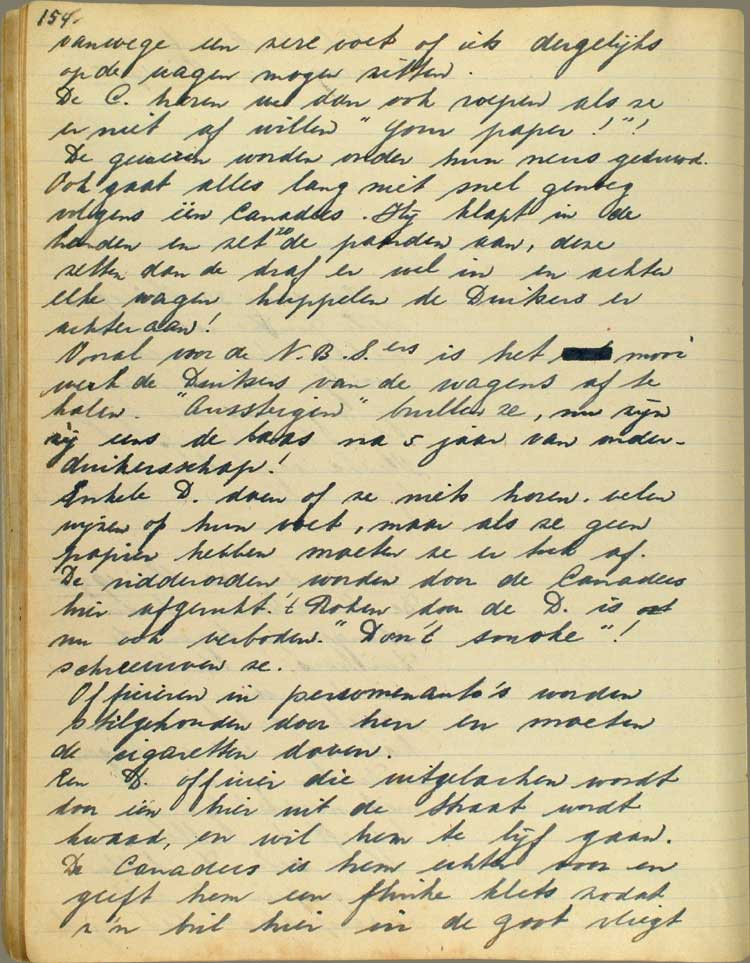 154.
vanwege een zere voet of iets dergelijks
op de wagen mogen zitten.
De C. horen we dan ook roepen als ze
er niet af willen "Your paper!"!
De geweren worden onder hun neus geduwd.
Ook gaat alles lang niet snel genoeg
volgens één Canadees. Hij klapt in de
handen en zet zo de paarden aan, deze
zetten dan de draf er wel in en achter
elke wagen huppelen de Duitkers er
achteraan!
Vooral voor de N.B.S.ers is het mooi
werk de Duitkers van de wagens af te
halen. "Aussteigen" brullen ze, nu zijn
zij eens de baas na 5 jaar van onder-
duikersschap!
Enkele D. doen of ze niets horen. velen
wijzen op hun voet, maar als ze geen
papier hebben moeten ze er toch af.
De ridderorden worden door de Canadees
hier afgerukt. 't Roken door de D. is
nu ook verboden. "Don't smoke"!
schreeuwen ze.
Officieren in personenauto's worden
stilgehouden door hen en moeten
de sigaretten doven.
Een D. officier die uitgelachen wordt
door één hier uit de straat wordt
kwaad, en wil hem te lijf gaan.
De Canadees is hem echter voor en
geeft hem een flinke klets zodat
z'n bril hier in de goot vliegt